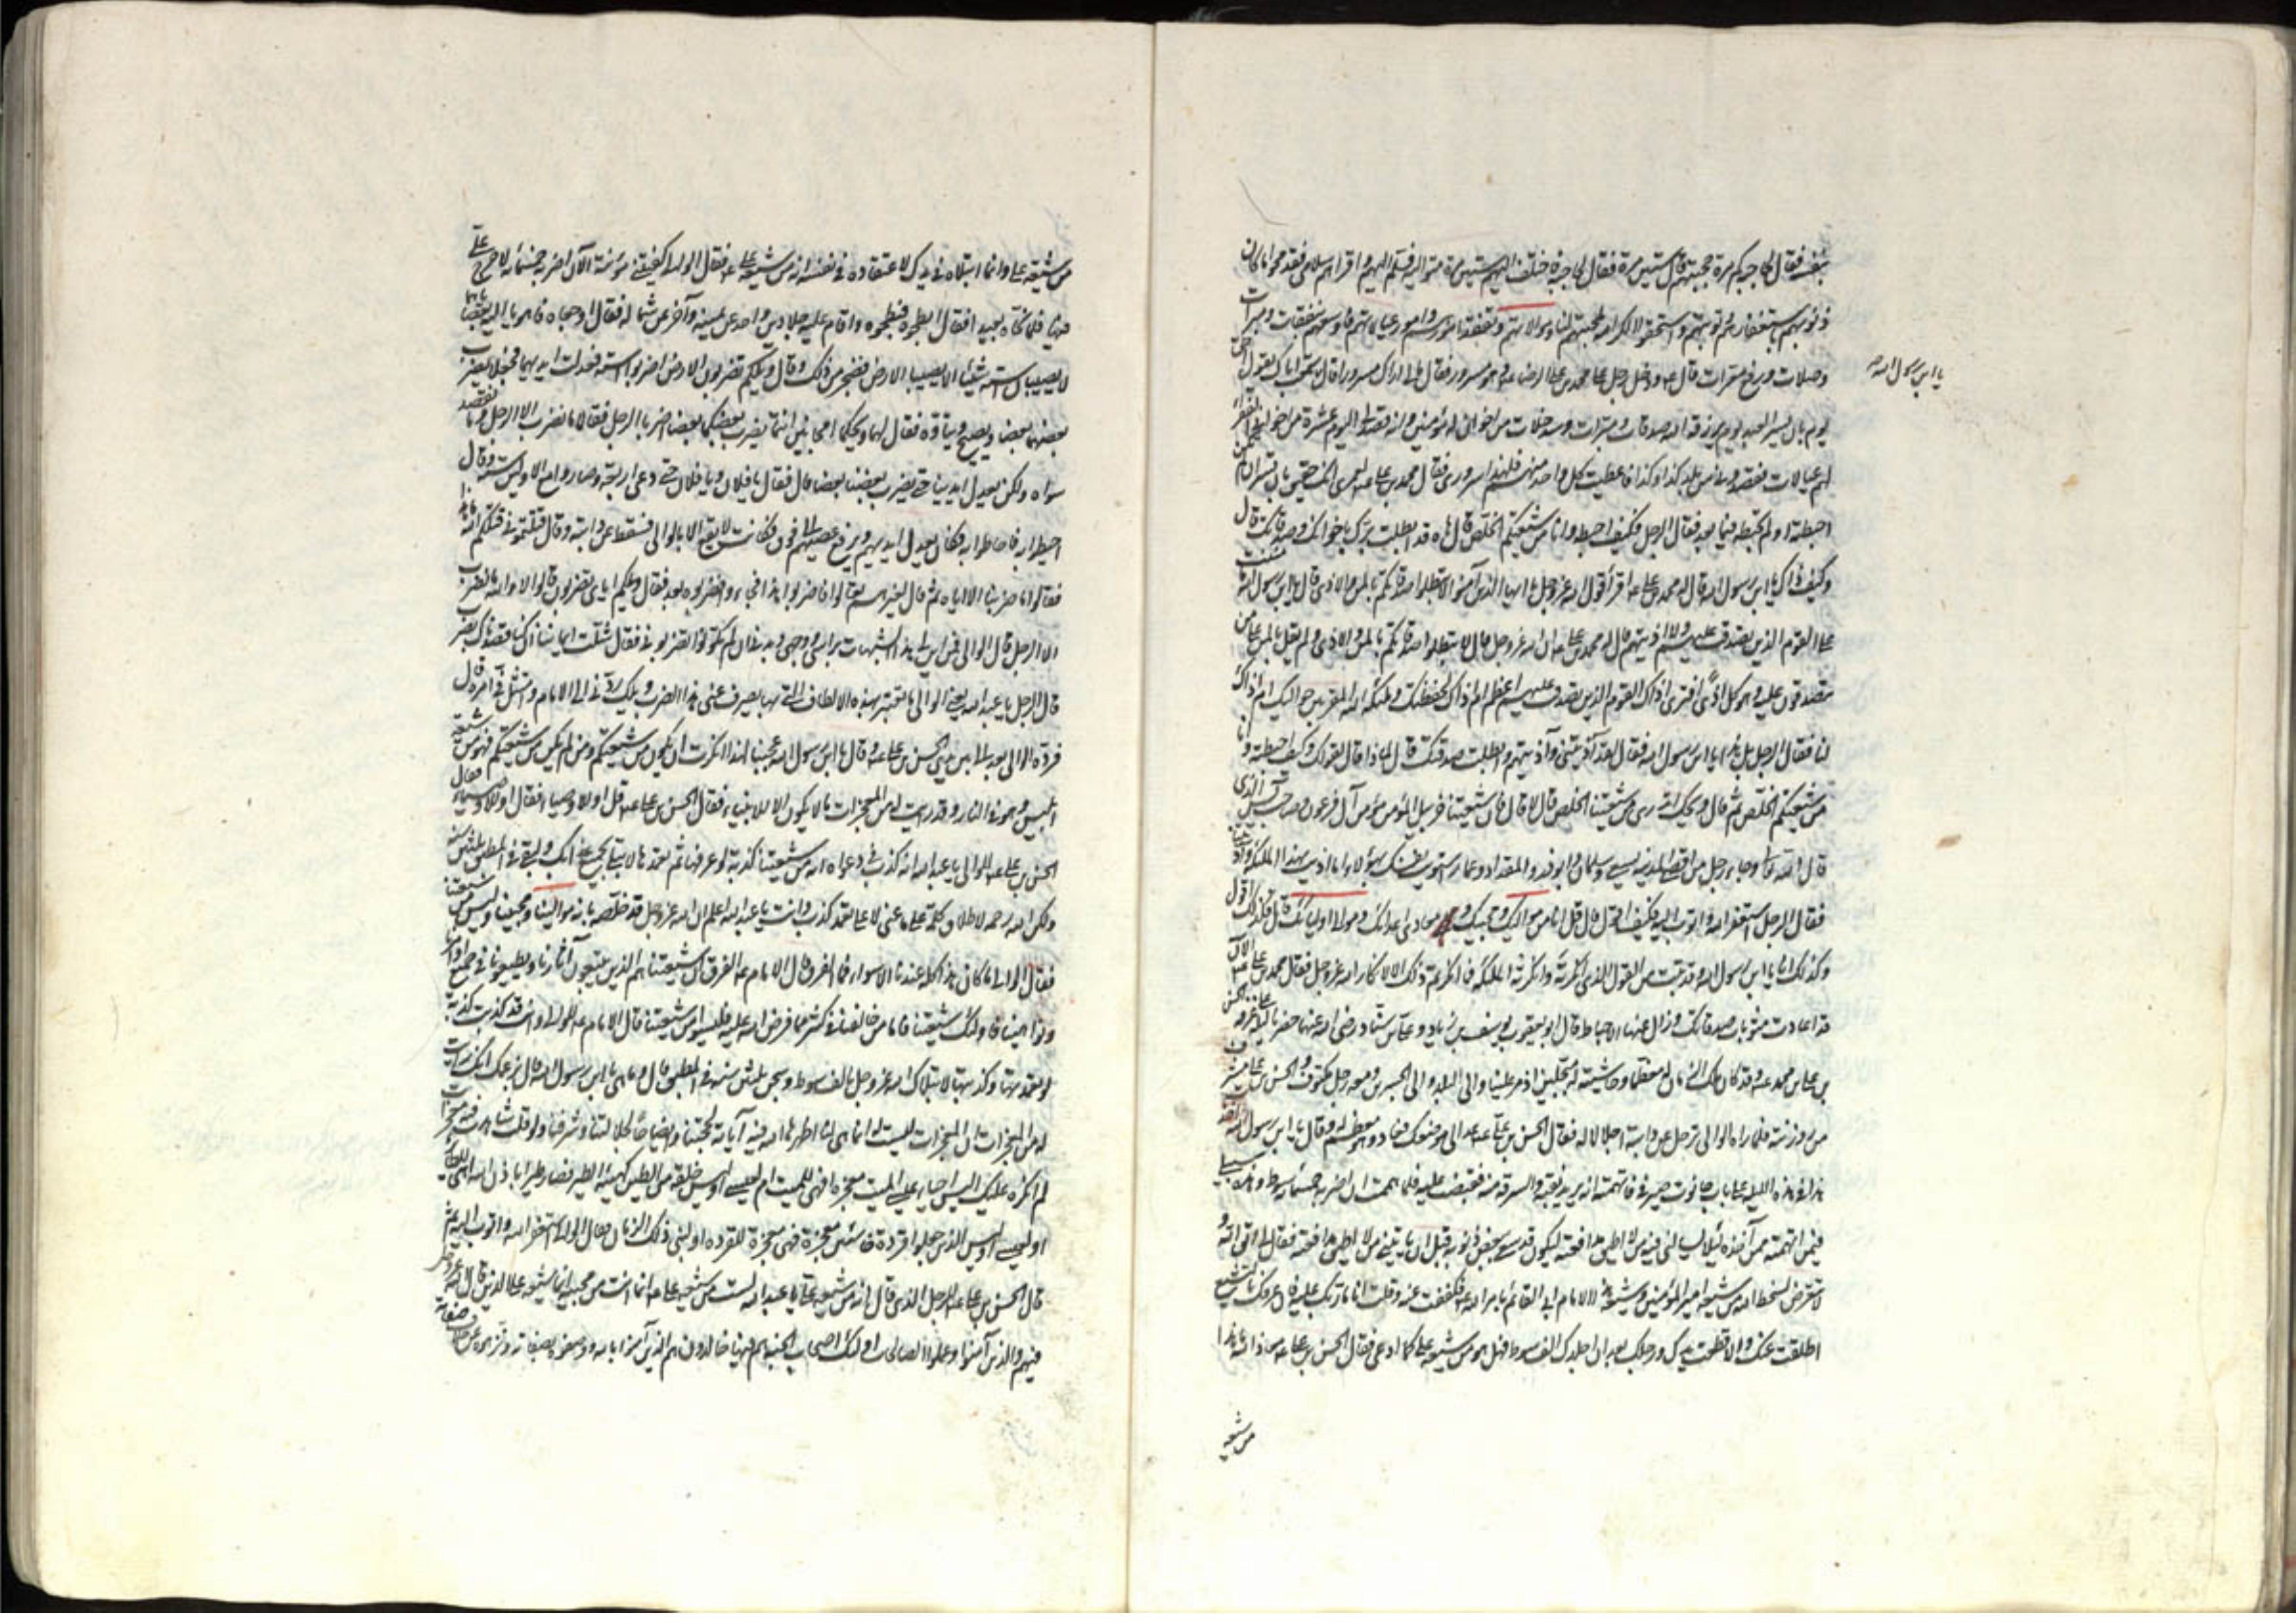 بنف فقال لحاجبه كم مرة حجبتهم قال ستين مرة فقال لحاجبه فاختلف اليهم ستين مرة متوالية فسلم عليهم واقراهم سلامي فقد محوا ما كان
ذنوبهم باستغفارهم وتوبتهم واستحقوا الكرامة لمحبتهم لنا وموالاتهم وتفقد امورهم وامور عيالاتهم فاوسعهم نفقات ومبرات
وصلات ودفع معرات قال عه ودخل رجل على محمد بن علي الرضا عه وهو مسرور فقال مالي اراك مسرورا قال سمعت اباك يقول احق
يا ابن رسول الله ص
يوم بان يسر العبد يوم يرزقه الله صدقات ومبرات وسد خلات من اخوان له مؤمنين وانه قصدني اليوم عشرة من اخواني الفقراء
لهم عيالات فقصدوني من بلد كذا وكذا فاعطيت كل واحد منهم فلهذا سروري فقال محمد بن علي عه لعمري انك حقيق بان تسر ان لم تكن
احبطته او لم تحبطه فيما بعد فقال الرجل فكيف احبطه وانا من شيعتكم الخلص قال هاه قد ابطلت برك باخوانك وصدقاتك قال
وكيف ذاك يا ابن رسول الله قال له محمد بن علي عه اقرأ قول الله عز وجل يا ايها الذين آمنوا لا تبطلوا صدقاتكم بالمن والاذى قال يا ابن رسول الله ما مننت
على القوم الذين تصدقت عليهم ولا آذيتهم قال له محمد بن علي عه ان الله عز وجل قال لا تبطلوا صدقاتكم بالمن والاذى ولم يقل بالمن على من
تتصدقون عليه وهو كل اذى افترى اذاك القوم الذين تصدقت عليهم اعظم ام اذاك لحفظتك وملئكة الله المقربين حواليك ام اذاك
لنا فقال الرجل بل هذا يا ابن رسول الله فقال لقد آذيتني وآذيتهم وابطلت صدقتك قال لماذا قال لقولك وكيف احبطته وانا
من شيعتكم الخلص ثم قال ويحك اتدري من شيعتنا الخلص قال لا قال فان شيعتنا حزبيل المؤمن مؤمن آل فرعون وصاحب يس الذي
قال الله تعالى وجاء رجل من اقصى المدينة يسعى وسلمان وابوذر والمقداد وعمار سويت نفسك بهؤلاء اما آذيت بهذا الملئكة وآذيتنا
فقال الرجل استغفر الله واتوب اليه فكيف اقول قال قل انا من مواليك ومحبيك ومعادي اعدائك وموالي اوليائك قال فكذلك اقول
وكذلك انا يا ابن رسول الله وقد تبت من القول الذي انكرته وانكرته الملئكة فما انكرتم ذلك الا لانكار الله عز وجل فقال محمد بن علي عه الآن
قد عادت مثوبات صدقاتك وزال عنها الاحباط قال ابو يعقوب يوسف بن زياد وعلي بن سيار رضي الله عنهما حضرنا ليلة على غرفة الحسن
بن علي بن محمد عه وقد كان ملك الزمان له معظما وحاشيته له مبجلين اذ مر علينا والي البلد والي الجسرين ومعه رجل مكتوف والحسن بن علي مشرف
من روزنته فلما رآه الوالي ترجل عن دابته اجلالا له فقال الحسن بن علي عه عد الى موضعك فعاد وهو معظم له وقال يا ابن رسول الله اخذت
هذا في هذه الليلة على باب حانوت صيرفي فاتهمته انه يريد نقبه والسرقة منه فقبضت عليه فلما هممت ان اضربه خمسمائة سوط وهذه سبيلي
فيمن اتهمته ممن آخذه لئلا يسالني فيه من لا اطيق مدافعته ليكون قد شقي ببعض ذنوبه قبل ان ياتيني من لا اطيق مدافعته فقال لي اتق الله و
لا تتعرض لسخط الله فاني من شيعة امير المؤمنين وشيعة هذا الامام ابي القائم بامر الله عه فكففت عنه وقلت انا مار بك عليه فان عرفك بالتشيع
اطلقت عنك والا قطعت يدك ورجلك بعد ان اجلدك الف سوط فهل هو من شيعة علي كما ادعى فقال الحسن بن علي عه معاذ الله ما هذا
من شيعة
من شيعة علي وانما ابتلاه في يدك لاعتقاده في نفسه انه من شيعة علي عه فقال الوالي كفيتني مؤنته الآن اضربه خمسمائة لا حرج علي
فيها فلما نحاه بعيدا فقال ابطحوه فبطحوه واقام عليه جلادين واحد عن يمينه وآخر عن شماله فقال اوجعاه فاهويا اليه بعصيهما
لا يصيبان استه شيئا الا يصيبا الارض فضجر من ذلك وقال ويلكم تضربون الارض اضربوا استه فعدلت ايديهما فجعلا يضرب
بعضهما بعضا ويصيح ويتاوه فقال لهما ويحكما امجانين انتما يضرب بعضكما بعضا اضربا الرجل فقالا ما نضرب الا الرجل وما نقصد
سواه ولكن يعدل ايدينا حتى يضرب بعضنا بعضا قال فقال يا فلان ويا فلان حتى دعى اربعة وصاروا مع الاولين ستة وقال
احيطوا به فاحاطوا به فكان يعدل ايديهم ويرفع عصيهم الى فوق فكانت لا تقع الا بالوالي فسقط عن دابته وقال قتلتموني قتلكم الله ما هذا
فقالوا ما ضربنا الا اياه ثم قال لغيرهم تعالوا فاضربوا هذا فجاءوا فضربوه بعد فقال ويلكم اياي تضربون قالوا لا والله ما نضرب
الا الرجل قال الوالي فمن اين لي هذه الشجات براسي ووجهي وبدني ان لم تكونوا تضربوني فقال شلت ايماننا ان كنا قصدناك بضرب
قال الرجل يا عبد الله يعني الوالي ما تعتبر بهذه الالطاف التي بها يصرف عني هذا الضرب ويلك ردني الى الامام وامتثل في امره قال
فرده الوالي بعد الى بين يدي الحسن بن علي عه وقال يا ابن رسول الله عجبنا لهذا انكرت ان يكون من شيعتكم ومن لم يكن من شيعتكم فهو من شيعة
ابليس وهو في النار وقد رايت له من المعجزات ما لا يكون الا للانبياء فقال الحسن بن علي عه قل او للاوصياء فقال او للاوصياء
فقال الحسن بن علي عه للوالي يا عبد الله انه كذب في دعواه انه من شيعتنا كذبة لو عرفها ثم تعمدها لابتلي بجميع عذابك ولبقي في المطبق ثلثين سنة
ولكن الله رحمه لاطلاق كلمة على ما عنى لا على تعمد كذب وانت يا عبد الله اعلم ان الله عز وجل قد خلصه بانه من موالينا ومحبينا وليس من شيعتنا
فقال الوالي ما كان هذا كله عندنا الا سواء فما الفرق قال الامام عه الفرق ان شيعتنا هم الذين يتبعون آثارنا ويطيعونا في جميع اوامرنا
ونواهينا فاولئك شيعتنا فاما من خالفنا في كثير مما فرض الله عليه فليسوا من شيعتنا قال الامام عه للوالي وانت قد كذبت كذبة
لو تعمدتها وكذبتها لابتلاك الله عز وجل بالف سوط وسجن ثلثين سنة في المطبق قال وما هي يا ابن رسول الله قال بزعمك انك رايت
له من المعجزات ان المعجزات ليست له انما هي لنا اظهرها الله فيه آيانة لحجتنا وايضاحا لجلالتنا وشرفنا ولو قلت شاهدت فيه معجزات
لم انكره عليك اليس احياء عيسى الميت معجزة افهي للميت ام لعيسى اوليس خلقه من الطين كهيئة الطير فصار طيرا باذن الله اهي للطائر
او لعيسى اوليس الذين جعلوا قردة خاسئين معجزة فهي معجزة للقردة او لنبي ذلك الزمان فقال الوالي استغفر الله واتوب اليه ثم
قال الحسن بن علي عه للرجل الذي قال انه من شيعة علي يا عبد الله لست من شيعة علي عه انما انت من محبيه انما شيعة علي الذين قال الله عز وجل
فيهم والذين آمنوا وعملوا الصالحات اولئك اصحاب الجنة هم فيها خالدون هم الذين آمنوا بالله ووصفوه بصفاته ونزهوه عن خلاف صفاته